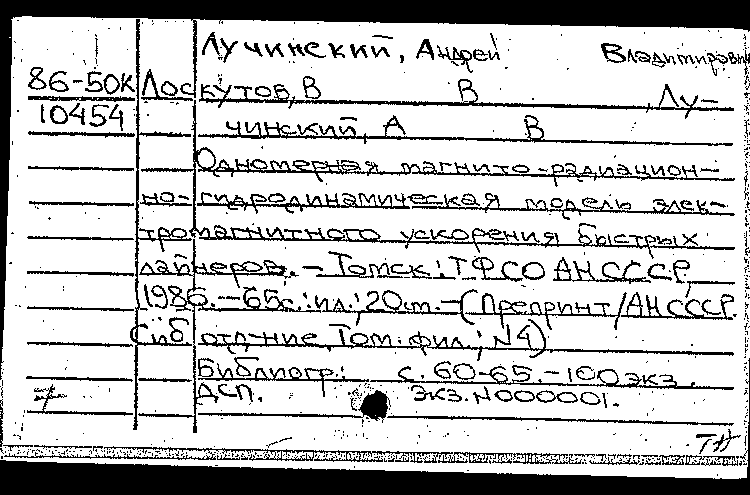 Лучинский, Андрей Владимирович
86-50К Лоскутов, В В , Лу-
10454 чинский, А В
Одномерная магнито-радиацион-
но-гидродинамическая модель элек-
тромагнитного ускорения быстрых
лайнеров. - Томск: ТФСО АН СССР,
1986. - 65с.: ил.; 20 см. - (Препринт/АН СССР.
Сиб отд-ние, Том. фил.; N4)
Библиогр.: с. 60-65. - 100 экз.
ДСП. экз. N000001.